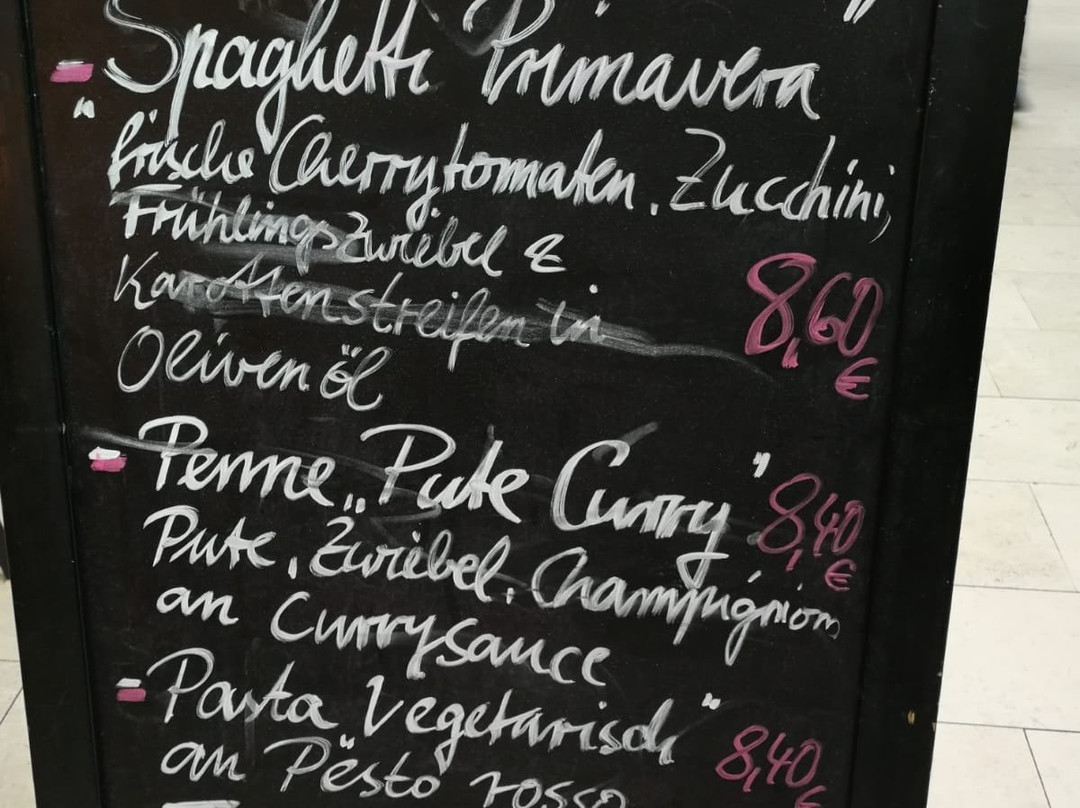 - Spaghetti Primavera "
" frische Cherrytomaten, Zucchini,
Frühlingszwiebel &
Karottenstreifen in
Olivenöl
8,60
€
- Penne „Pute Curry" 8,40
€
Pute, Zwiebel, Champignion
an Currysauce
- Pasta Vegetarisch"
an Pesto rosso
8,40
€